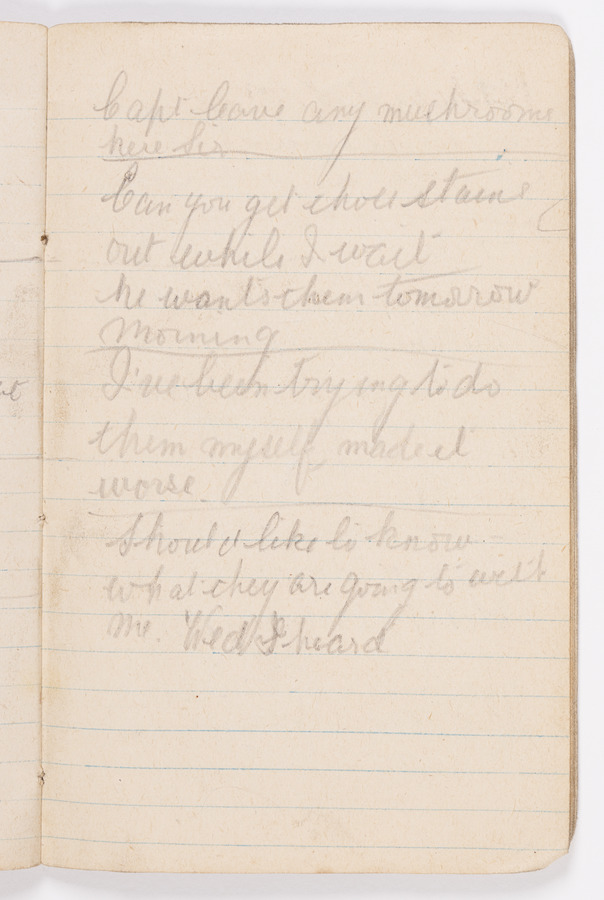 Capt leave any mushrooms
here Sir
Can you get those stains
out while I wait
he wants them tomorrow
Morning
I've been trying to do
them myself made it
worse.
Should like to know
what they are going to
me. Wed I heard